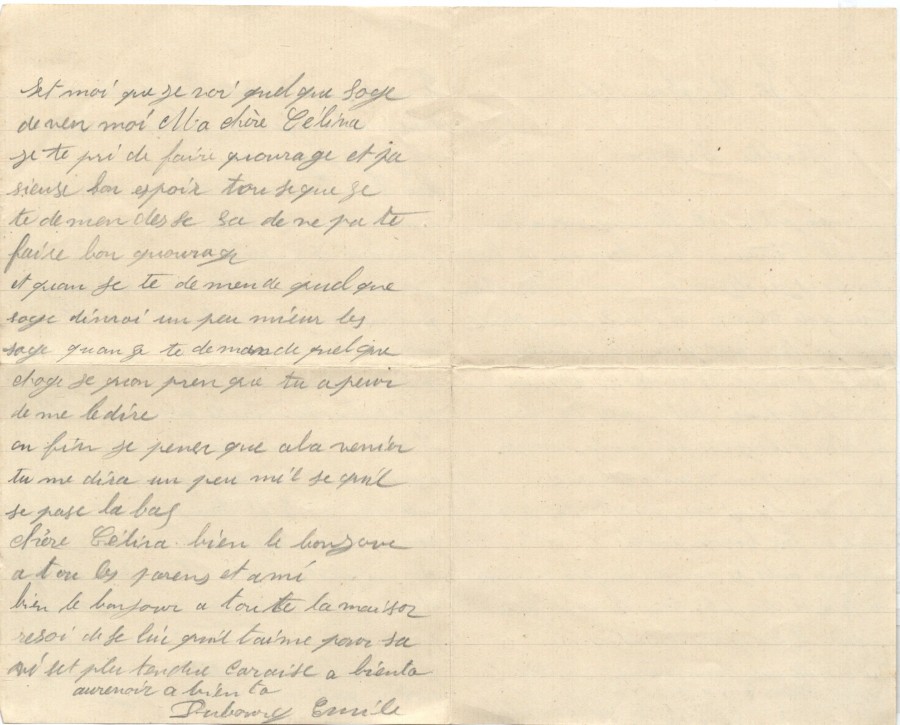 set moi que je voi quelque soge
de ven moi Ma chère Célina
je te pri de faire quourage et pa
sieuse bon espoir tou se que je
te demen des se sa de ne pa te
faire bon quourage
et quan je te demende quelque
soge dinroi un peu mieux les
soge quan je te demande quelque
choge je quon pren que tu a peur
de me le dire
en fin je penser que a la venier
tu me dira un peu mi'l se qu'il
se pase la bas
chère Célina bien le bonjour
a tou les parens et ami
bien le bonjour a toute la maison
resoi de se lui qu'il t'aime pour sa
vi set plu tendre caraise a biento
aurevoir a biento
Dubourg Emile